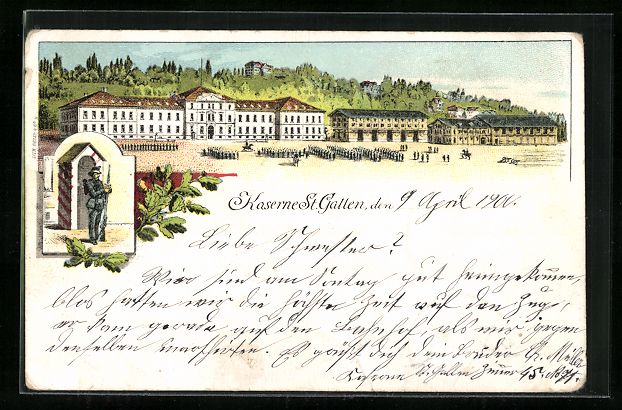 Kaserne St. Gallen, den 9 April 1900.
Liebe Schwester?
Wir sind am Sontag gut heimgekommen,
blos hatten wir die höchste Zeit auf den Zug,
er kam gerade auf den Bahnhof als wir gegen
denselben marschirten. Es grüßt dich dein Bruder
Kaserne St. Gallen Zimmer 45.